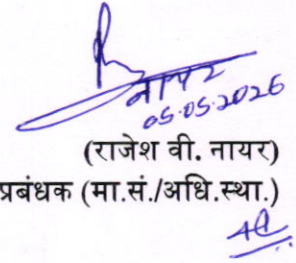 नायर
05.05.2026
(राजेश वी. नायर)
प्रबंधक (मा.सं./अधि.स्था.)